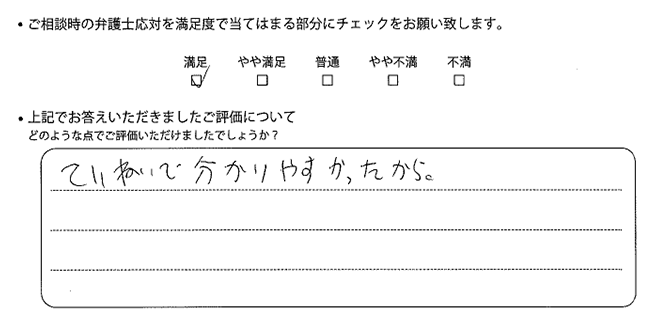 • ご相談時の弁護士応対を満足度で当てはまる部分にチェックをお願い致します。
満足 やや満足 普通 やや不満 不満
☑ □ □ □ □
• 上記でお答えいただきましたご評価について
どのような点でご評価いただけましたでしょうか？
ていねいで分かりやすかったから。